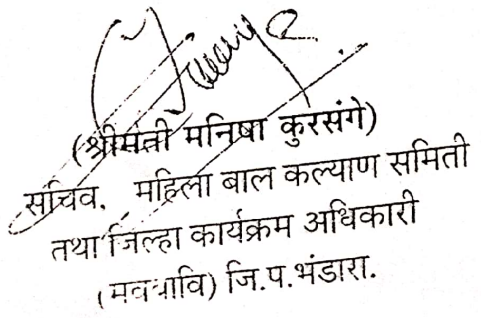 (श्रीमती मनिषा कुरसंगे)
सचिव, महिला बाल कल्याण समिती
तथा जिल्हा कार्यक्रम अधिकारी
जि.प.भंडारा.